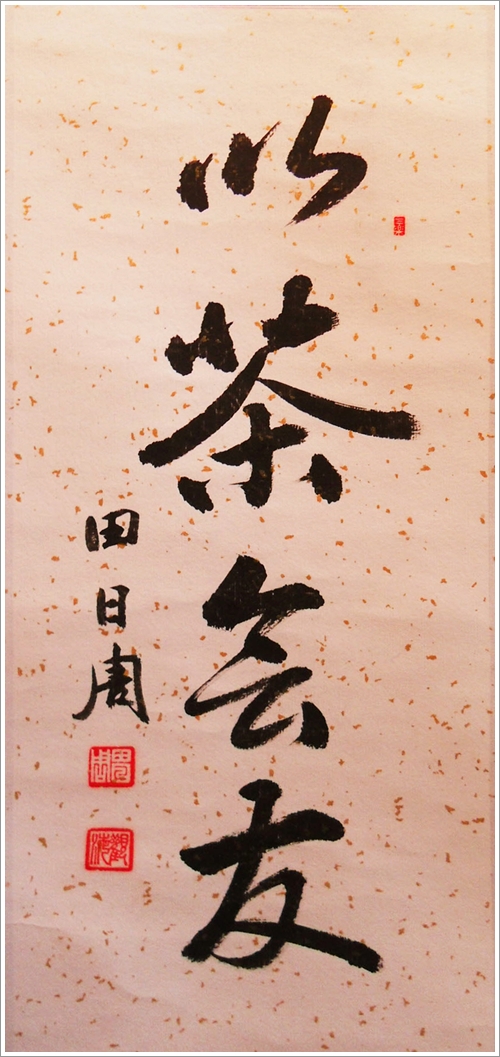 以茶会友
田日周